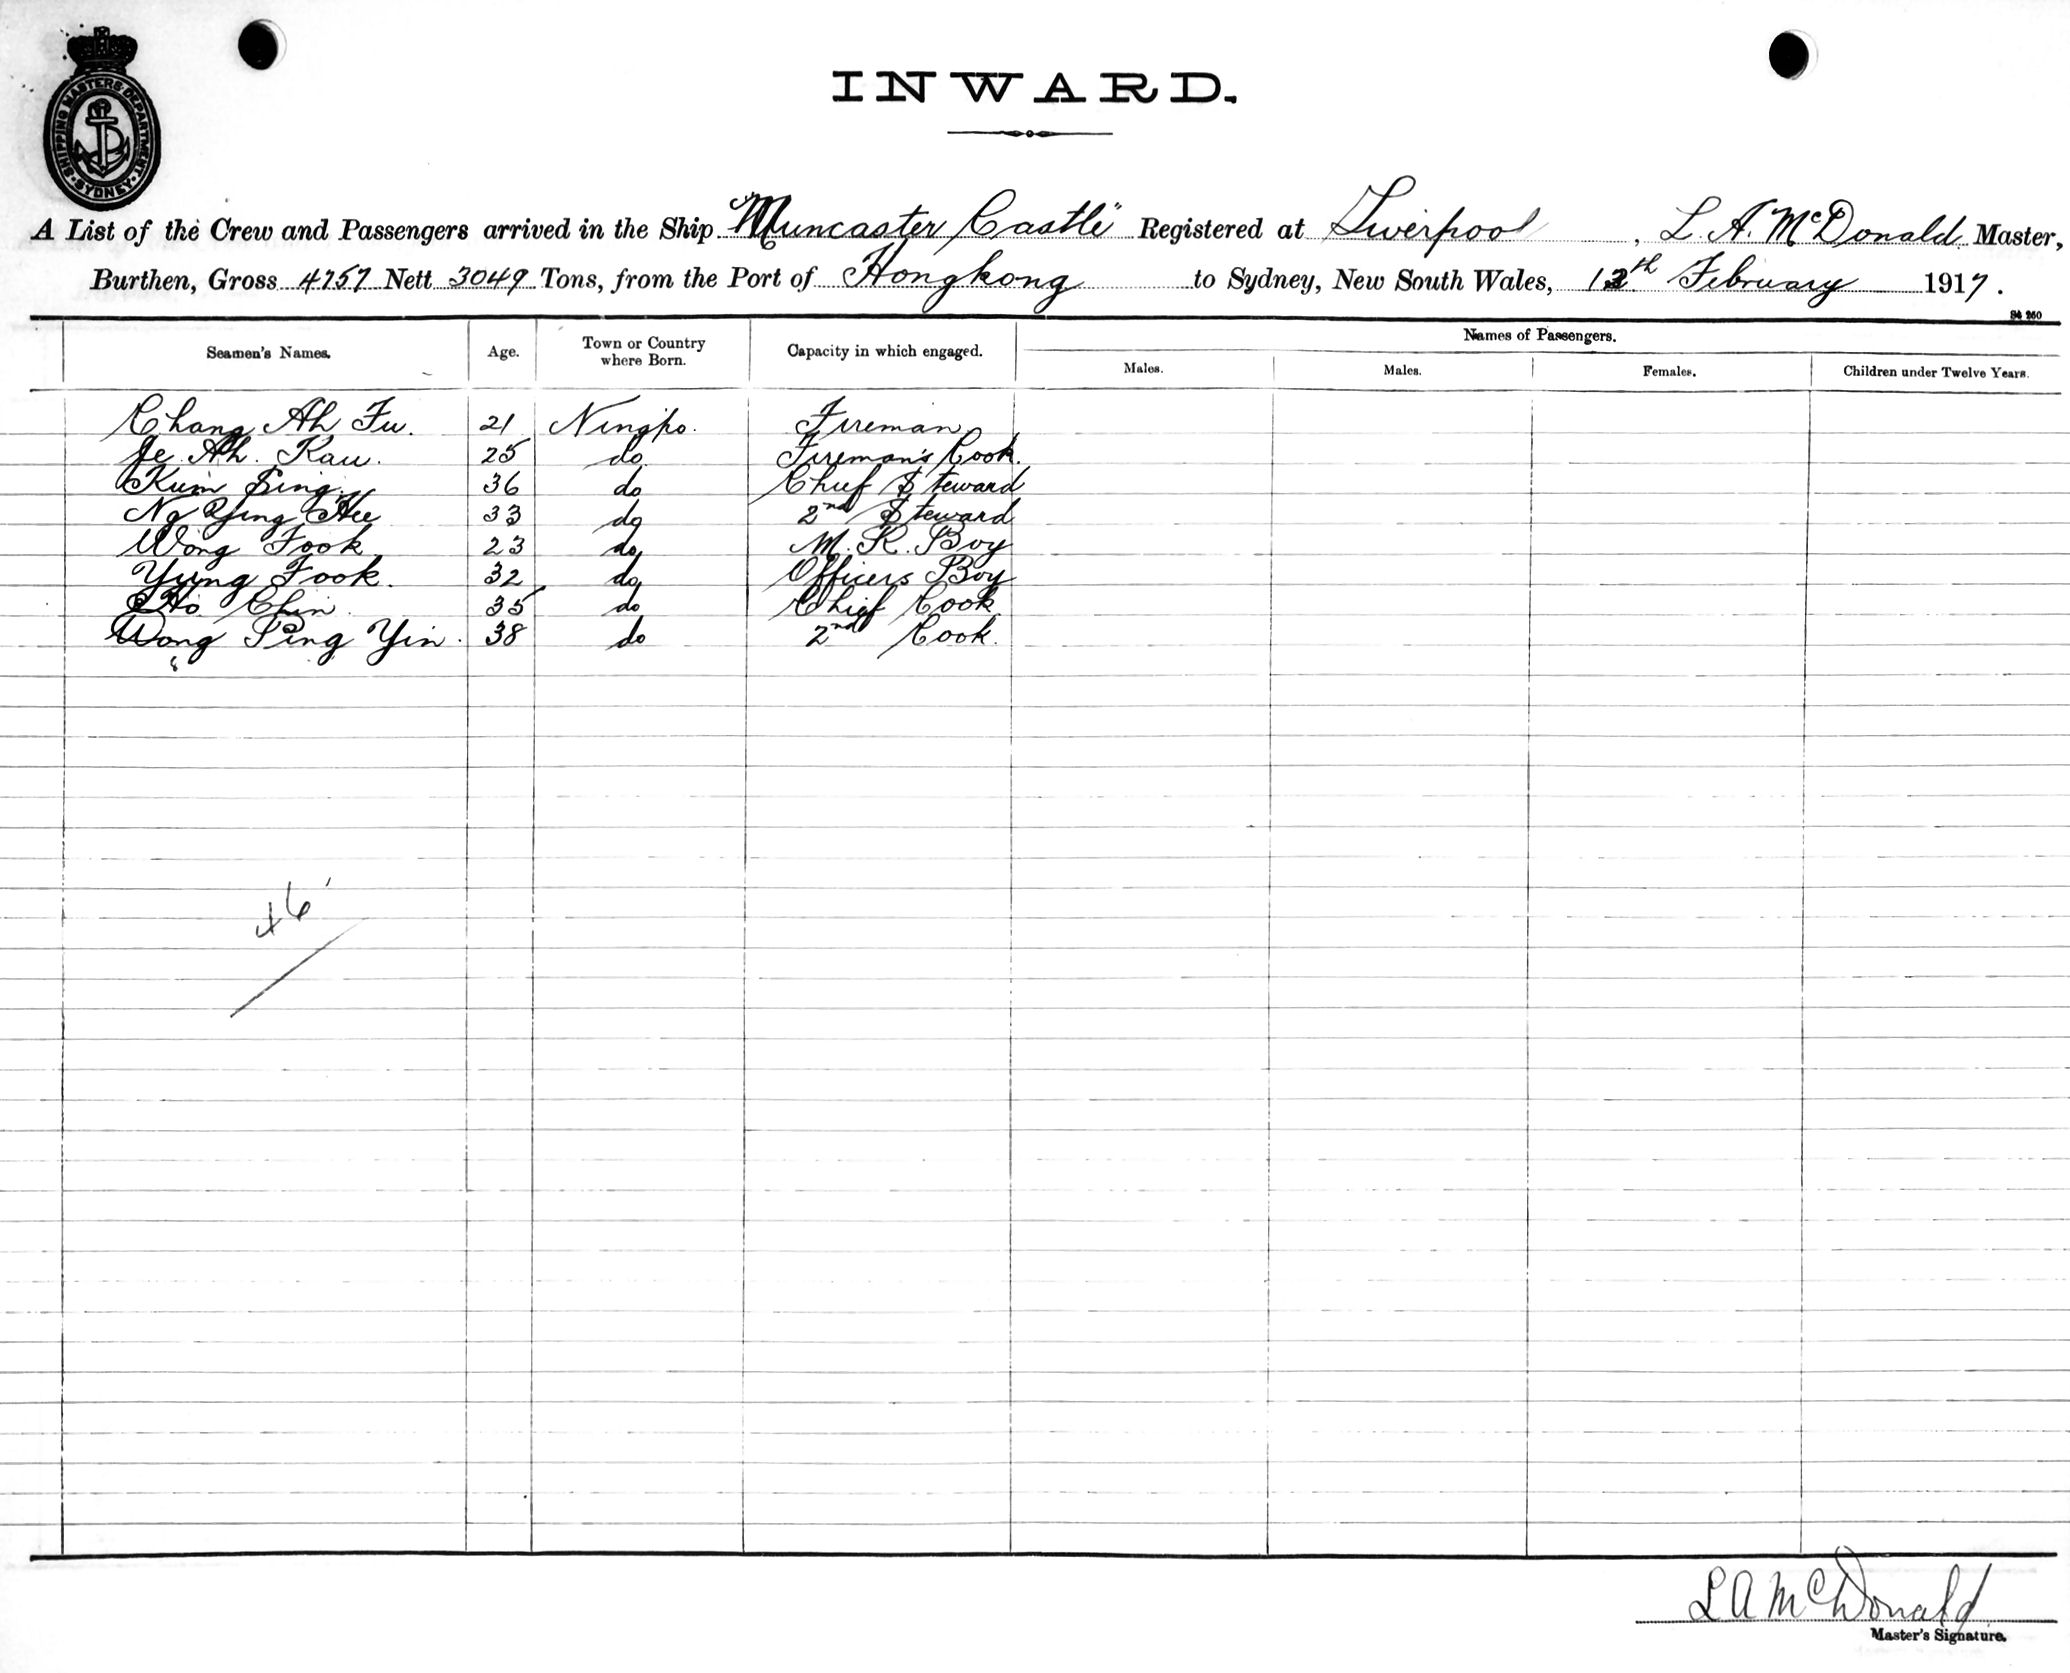 SHIPPING MASTERS DEPARTMENT
SYDNEY
INWARD.
A List of the Crew and Passengers arrived in the Ship "Muncaster Castle" Registered at Liverpool, L. A. McDonald Master,
Burthen, Gross 4757 Nett 3049 Tons, from the Port of Hongkong to Sydney, New South Wales, 12th February 1917.
Names of Passengers.
Seamen's Names. Age. Town or Country where Born. Capacity in which engaged. Males. Males. Females. Children under Twelve Years.
Chang Ah Fu. 21 Ningpo. Fireman
Je Ah. Kau. 25 do Fireman's Cook.
Kum Sing 36 do Chief Steward
Ng Ying Hee 33 do 2nd Steward
Wong Fook 23 do M. R. Boy
Yung Fook. 32 do Officers Boy
Ho Chin 35 do Chief Cook
Wong Ping Yin. 38 do 2nd Cook.
46
L A McDonald
Master's Signature.